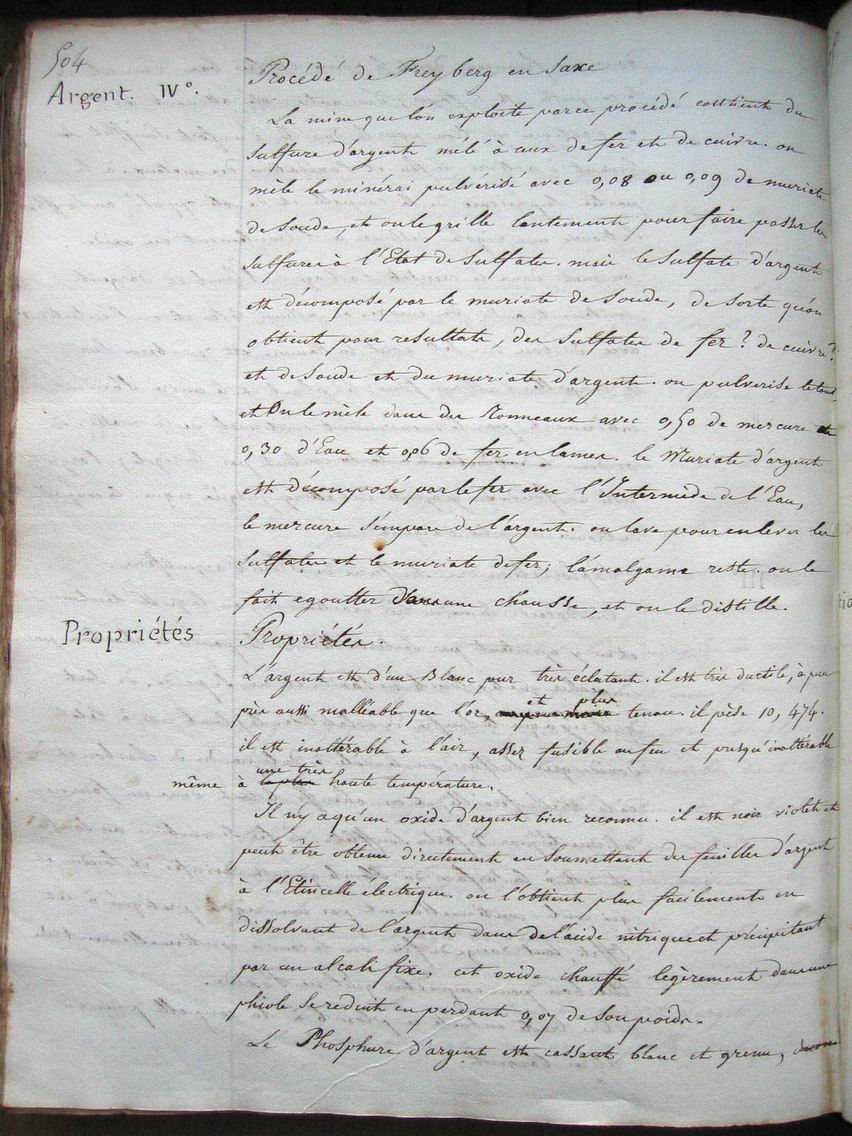 504
Argent. IV°.
Procédé de Freyberg en Saxe
La mine que l'on exploite par ce procédé contient du
sulfure d'argent mêlé à ceux de fer et de cuivre. on
mêle le minérai pulvérisé avec 0,08 ou 0,09 de muriate
de soude, et on le grille lentement pour faire passer les
sulfures à l'Etat de sulfates. mais le sulfate d'argent
est décomposé par le muriate de soude, de sorte qu'on
obtient pour resultats, des sulfates de fer? de cuivre?
et de soude et du muriate d'argent. on pulverise le tout,
et on le mêle dans des Tonneaux avec 0,50 de mercure et
0,30 d'Eau et 0,06 de fer en lames. le Muriate d'argent
est décomposé par le fer avec l'Intermède de l'Eau,
le mercure s'empare de l'argent. on lave pour enlever les
sulfates et le muriate de fer, l'amalgame reste. on le
fait egoutter dans une chausse, et on le distille.
Propriétés
Propriétés.
L'argent est d'un Blanc pur très éclatant. il est très ductile, à peu
près aussi malléable que l'or, et plus tenace. il pèse 10,474.
il est inaltérable à l'air, assez fusible au feu et presqu'inaltérable
même à une très haute température.
Il n'y a qu'un oxide d'argent bien reconnu. il est noir violet et
peut être obtenu directement en soumettant des feuilles d'argent
à l'Etincelle électrique. on l'obtient plus facilement en
dissolvant de l'argent dans de l'acide nitrique et précipitant
par un alcali fixe. cet oxide chauffé legèrement dans une
phiole se reduit en perdant 0,07 de son poids.
Le Phosphure d'argent est cassant blanc et grenu,